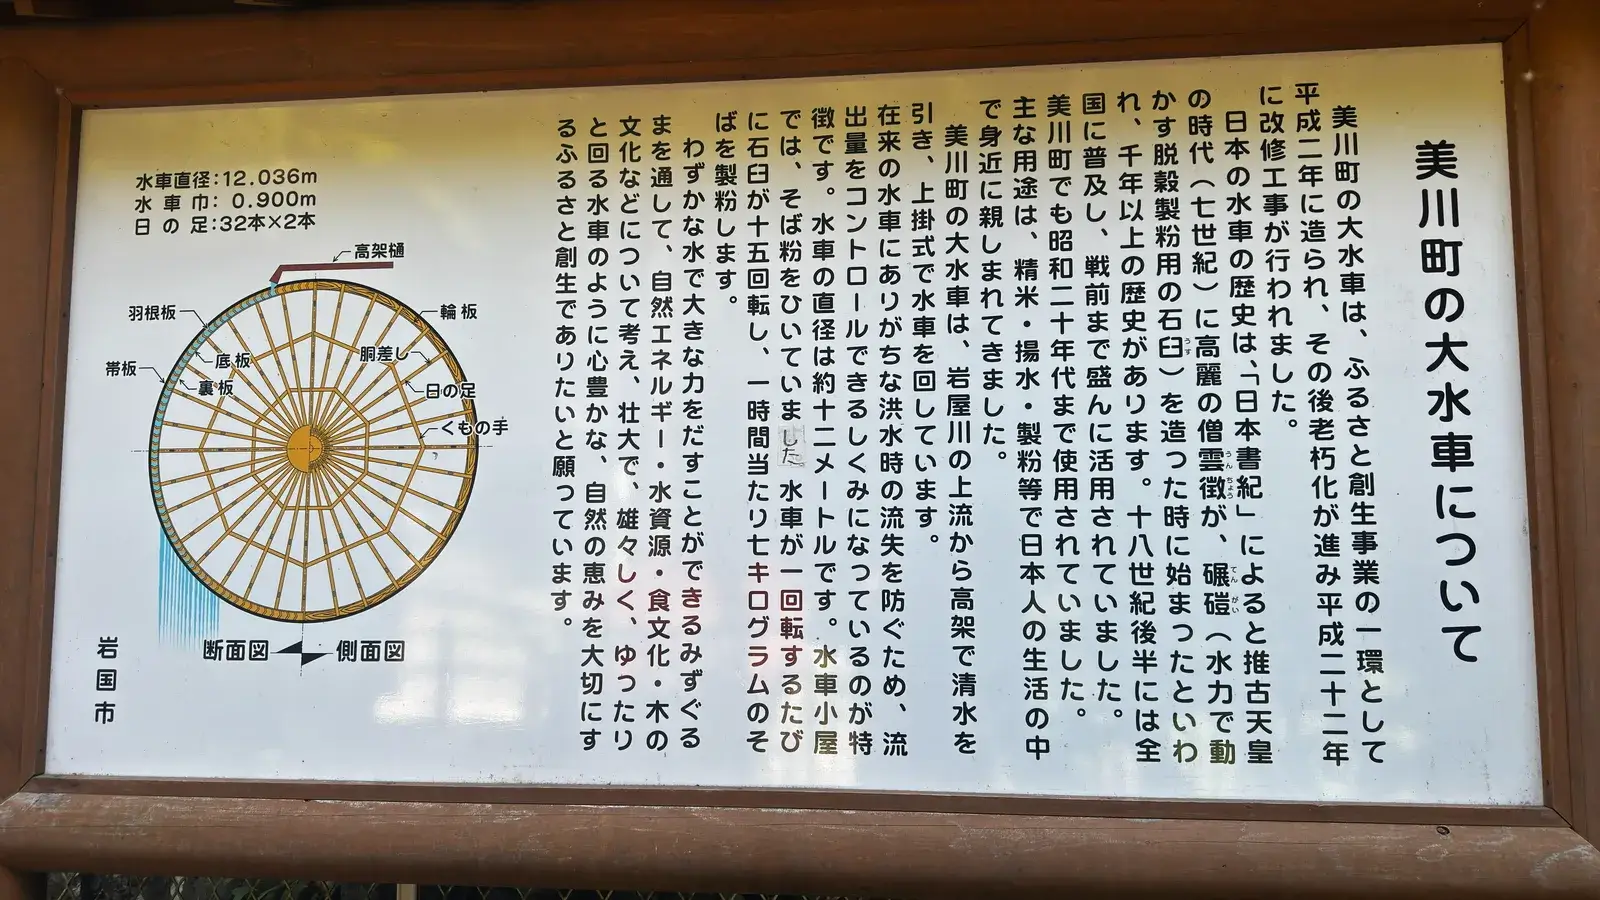 美川町の大水車について
美川町の大水車は、ふるさと創生事業の一環として
平成二年に造られ、その後老朽化が進み平成二十二年
に改修工事が行われました。
日本の水車の歴史は、「日本書紀」によると推古天皇
の時代（七世紀）に高麗の僧雲徴が、碾磑（水力で動
うんちょう
てんがい
かす脱穀製粉用の石臼）を造った時に始まったといわ
うす
れ、千年以上の歴史があります。十八世紀後半には全
国に普及し、戦前まで盛んに活用されていました。
美川町でも昭和二十年代まで使用されていました。
主な用途は、精米・揚水・製粉等で日本人の生活の中
で身近に親しまれてきました。
美川町の大水車は、岩屋川の上流から高架で清水を
引き、上掛式で水車を回しています。
在来の水車にありがちな洪水時の流失を防ぐため、流
出量をコントロールできるしくみになっているのが特
徴です。水車の直径は約十二メートルです。水車小屋
では、そば粉をひいていました。水車が一回転するたび
に石臼が十五回転し、一時間当たり七キログラムのそ
ばを製粉します。
わずかな水で大きな力をだすことができるみずぐる
まを通して、自然エネルギー・水資源・食文化・木の
文化などについて考え、壮大で、雄々しく、ゆったり
と回る水車のように心豊かな、自然の恵みを大切にす
るふるさと創生でありたいと願っています。
水車直径:12.036m
水車巾: 0.900m
日の足:32本×2本
高架樋
羽根板
輪板
底板
胴差し
帯板
裏板
日の足
くもの手
断面図
側面図
岩国市